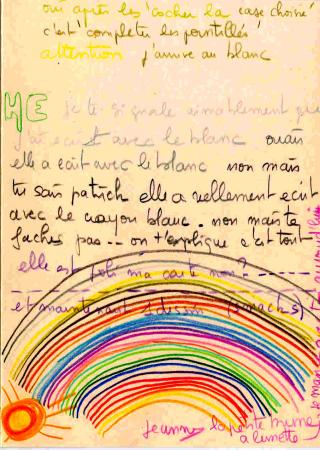 oui après les cocher la case choisie
c'est compléter les pointillés
attention j'arrive au blanc
HE je te signale aimablement que
j'ai écrit avec le blanc ouais
elle a écrit avec le blanc non mais
tu sais patrick elle a rellement ecrit
avec le crayon blanc. non mais te
faches pas -- on t'explique c'est tout
elle est joli ma carte non?
et maintenant 1 dessin
Jeanne la petite meme
a lunette